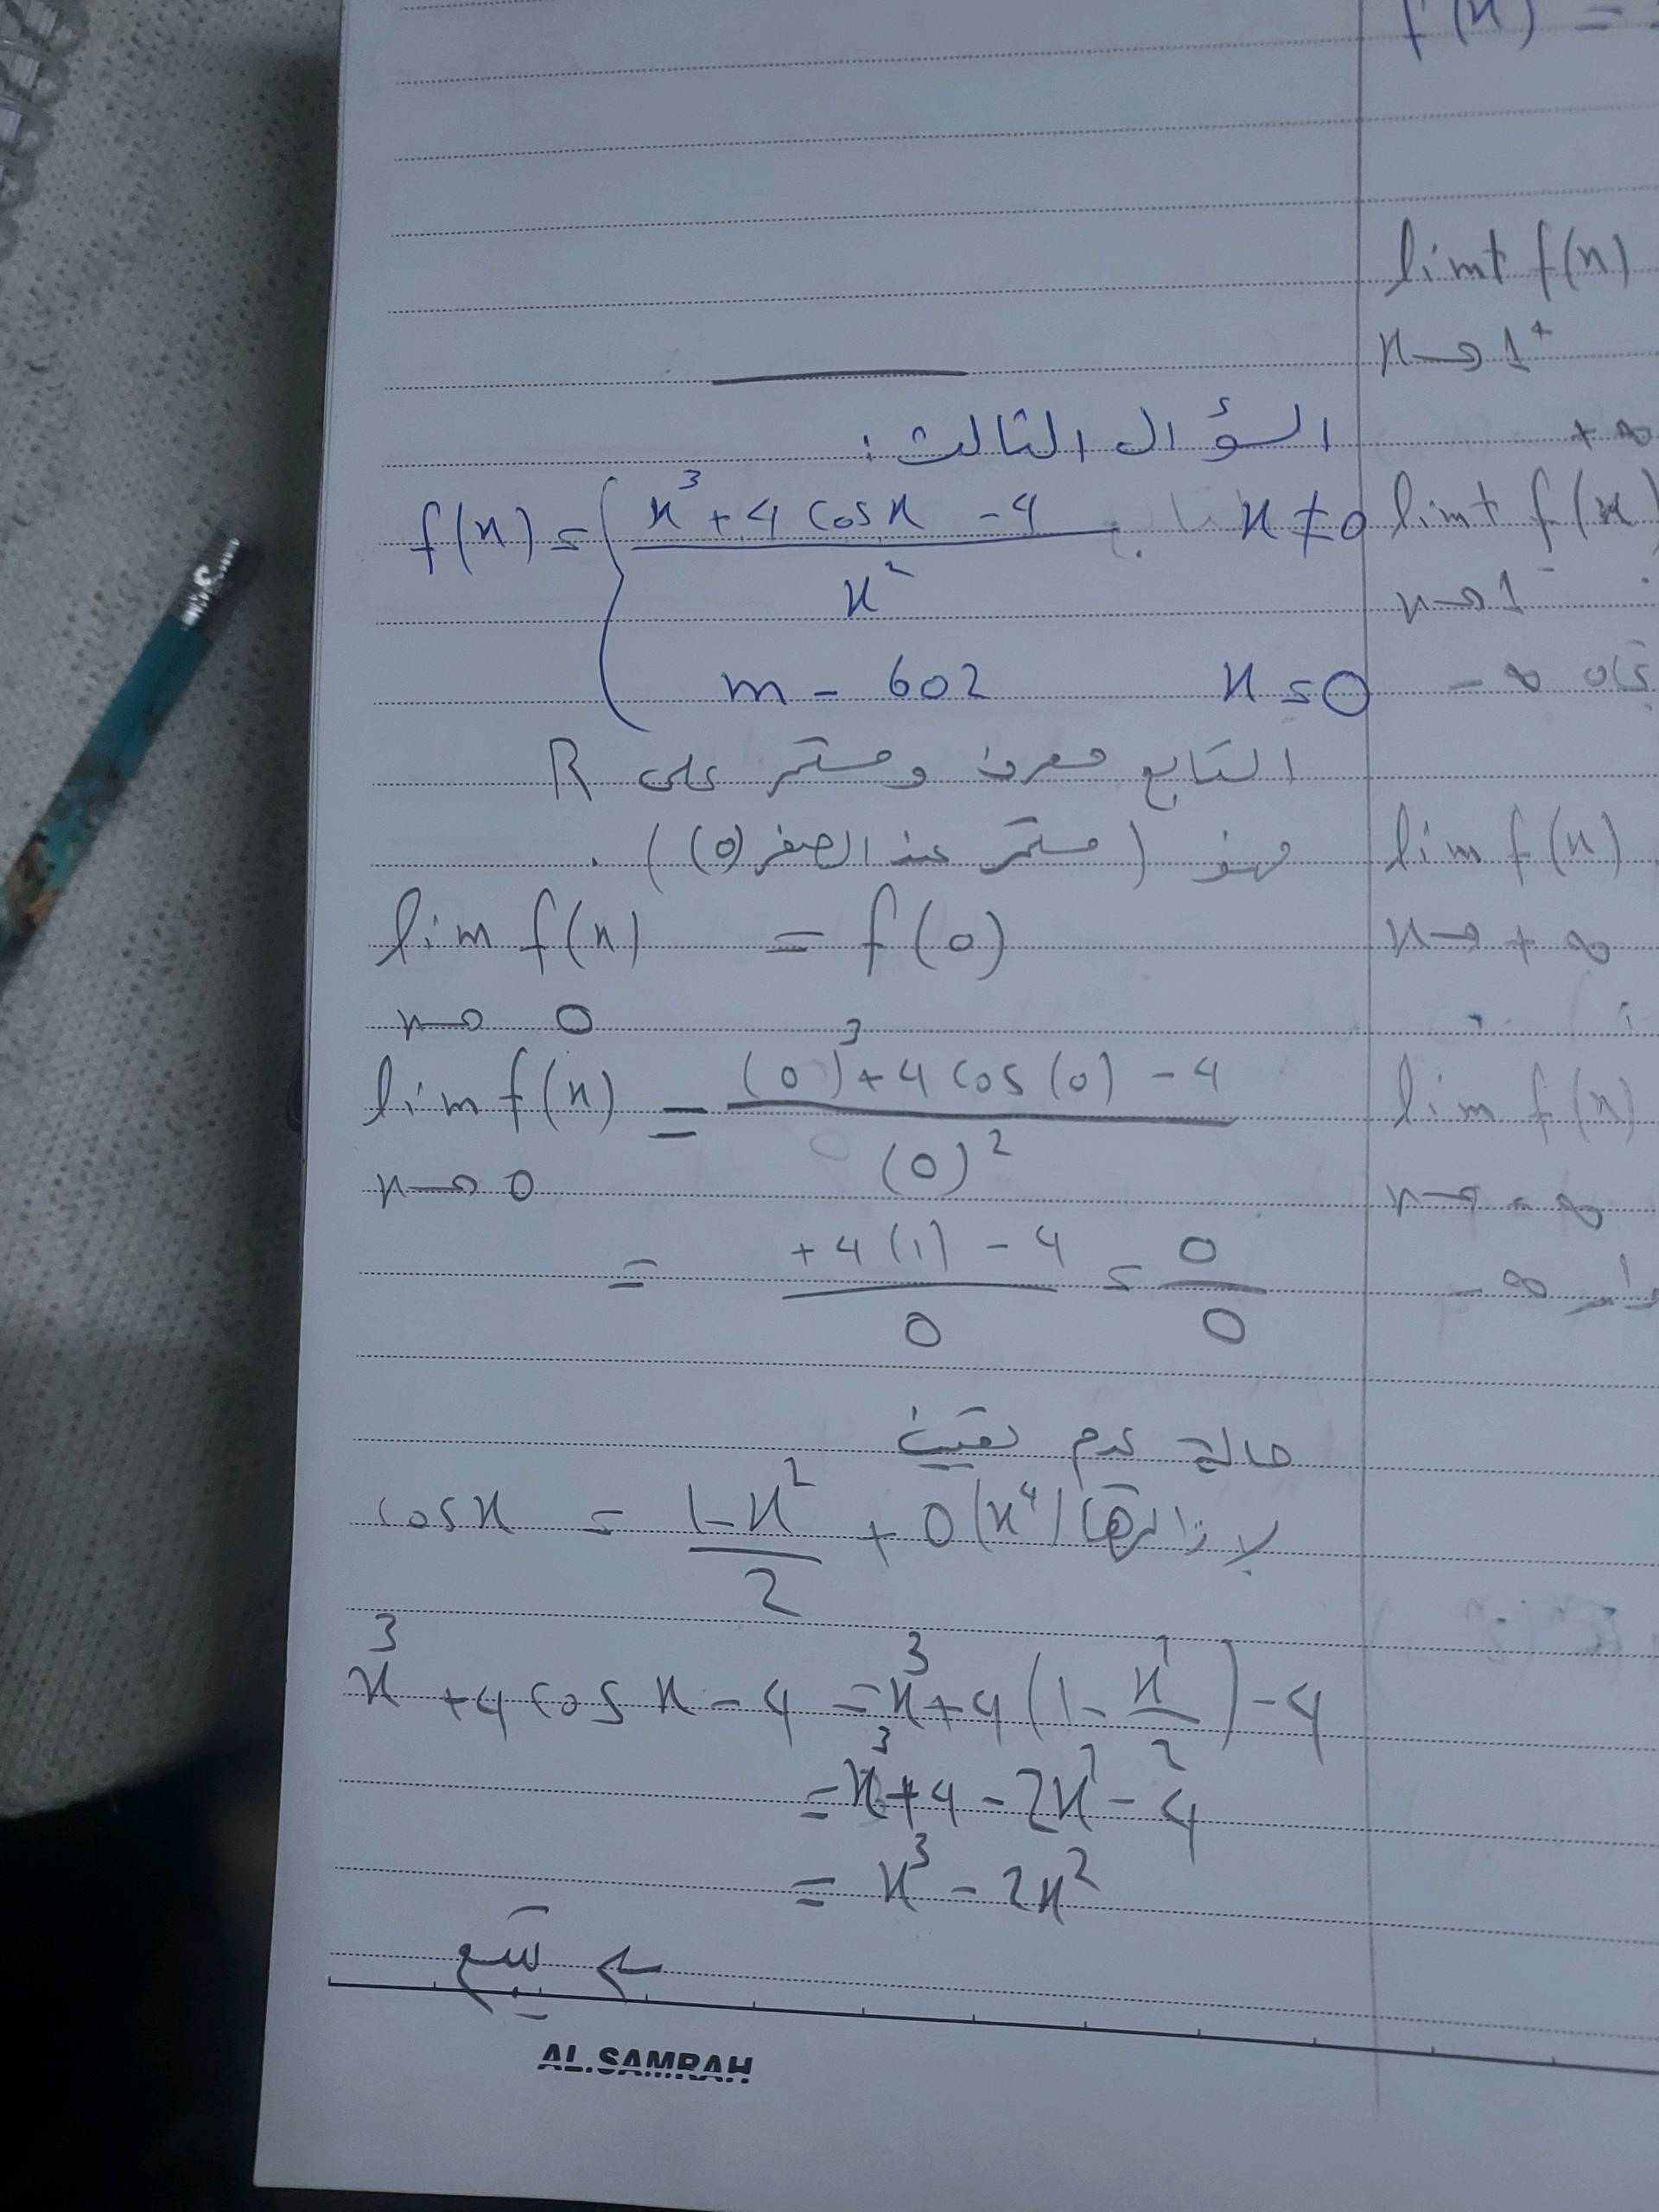 f(x) =
السؤال الثالث:
f(x) = { (x³ + 4 cos x - 4) / x² x ≠ 0
m - 602 x = 0
التابع معرف ومستمر على R
فهو (مستمر عند الصفر (0)) .
lim f(x) = f(0)
x → 0
lim f(x) = ((0)³ + 4 cos (0) - 4) / (0)²
x → 0
= (+4(1) - 4) / 0 = 0 / 0
حالة عدم تعيين
cos x = (1 - x²) / 2 + 0(x⁴) لإزالتها
x³ + 4 cos x - 4 = x³ + 4 (1 - x² / 2) - 4
= x³ + 4 - 2x² - 4
= x³ - 2x²
← يتبع
AL.SAMRAH
limt f(x)
x → 1⁺
+ ∞
limt f(x)
x → 1⁻
- ∞
lim f(x)
x → + ∞
lim f(x)
x → - ∞
- ∞